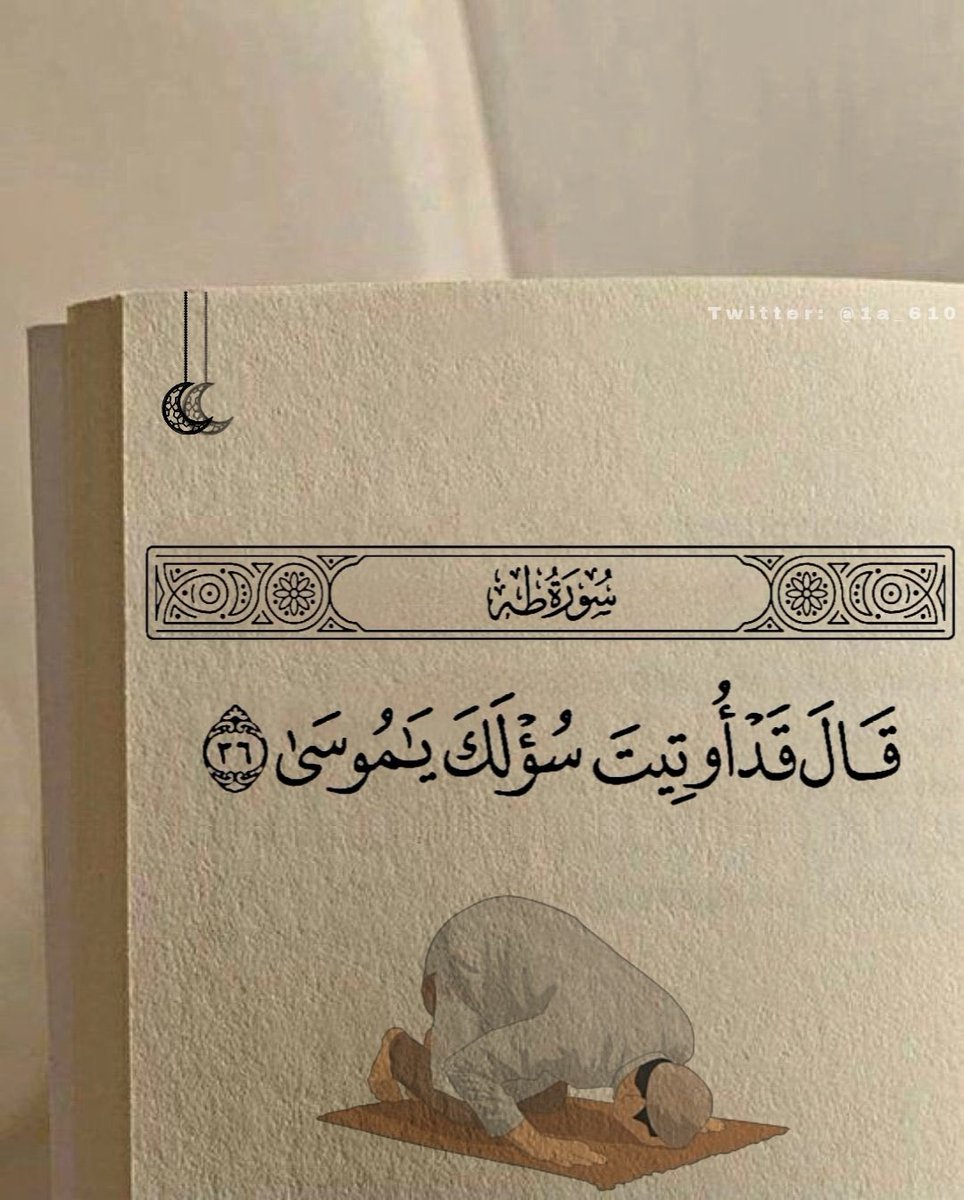 Twitter: @1a_610
سُورَةُ طه
قَالَ قَدْ أُوتِيتَ سُؤْلَكَ يَٰمُوسَىٰ ٣٦